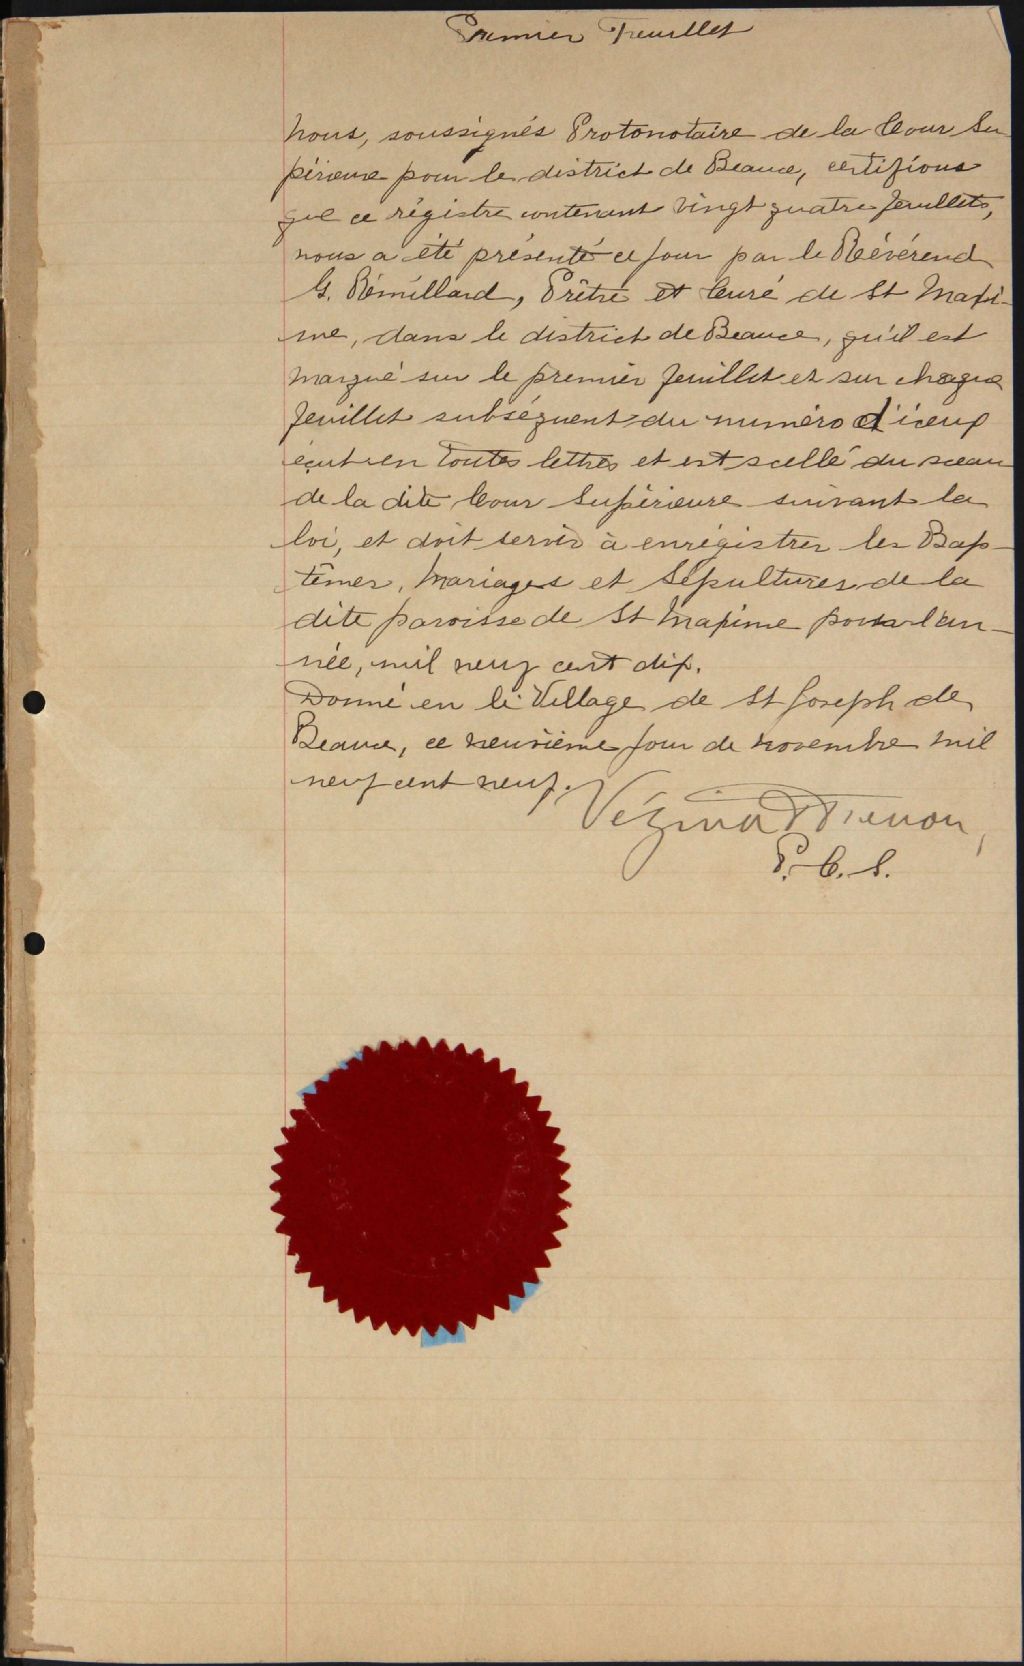 Premier Feuillet
Nous, soussignés Protonotaire de la Cour Su-
périeure pour le district de Beauce, certifions
que ce régistre contenant vingt quatre feuillets,
nous a été présenté ce jour par le Révérend
G. Rémillard, Prêtre et Curé de St Maxi-
me, dans le district de Beauce, qu'il est
marqué sur le premier feuillet et sur chaque
feuillet subséquent du numéro d'iceux
écrit en toutes lettres et est scellé du sceau
de la dite Cour Supérieure suivant la
loi, et doit servir à enrégistrer les Bap-
têmes, Mariages et Sépultures de la
dite paroisse de St Maxime pour l'an-
née, mil neuf cent dix.
Donné en le Village de St Joseph de
Beauce, ce neuvième jour de novembre mil
neuf cent neuf.
Vézina
P. C. S.